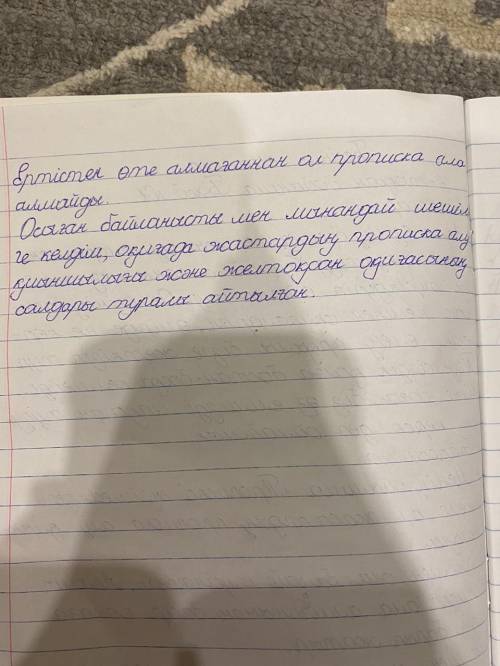 Ертістен өте алмағаннан ол прописка ала
алмайды.
Осыған байланысты мен мынандай шешім
ге келдім, оқиғада жастардың прописка алу
қиыншылығы және желтоқсан оқиғасының
салдары туралы айтылған.